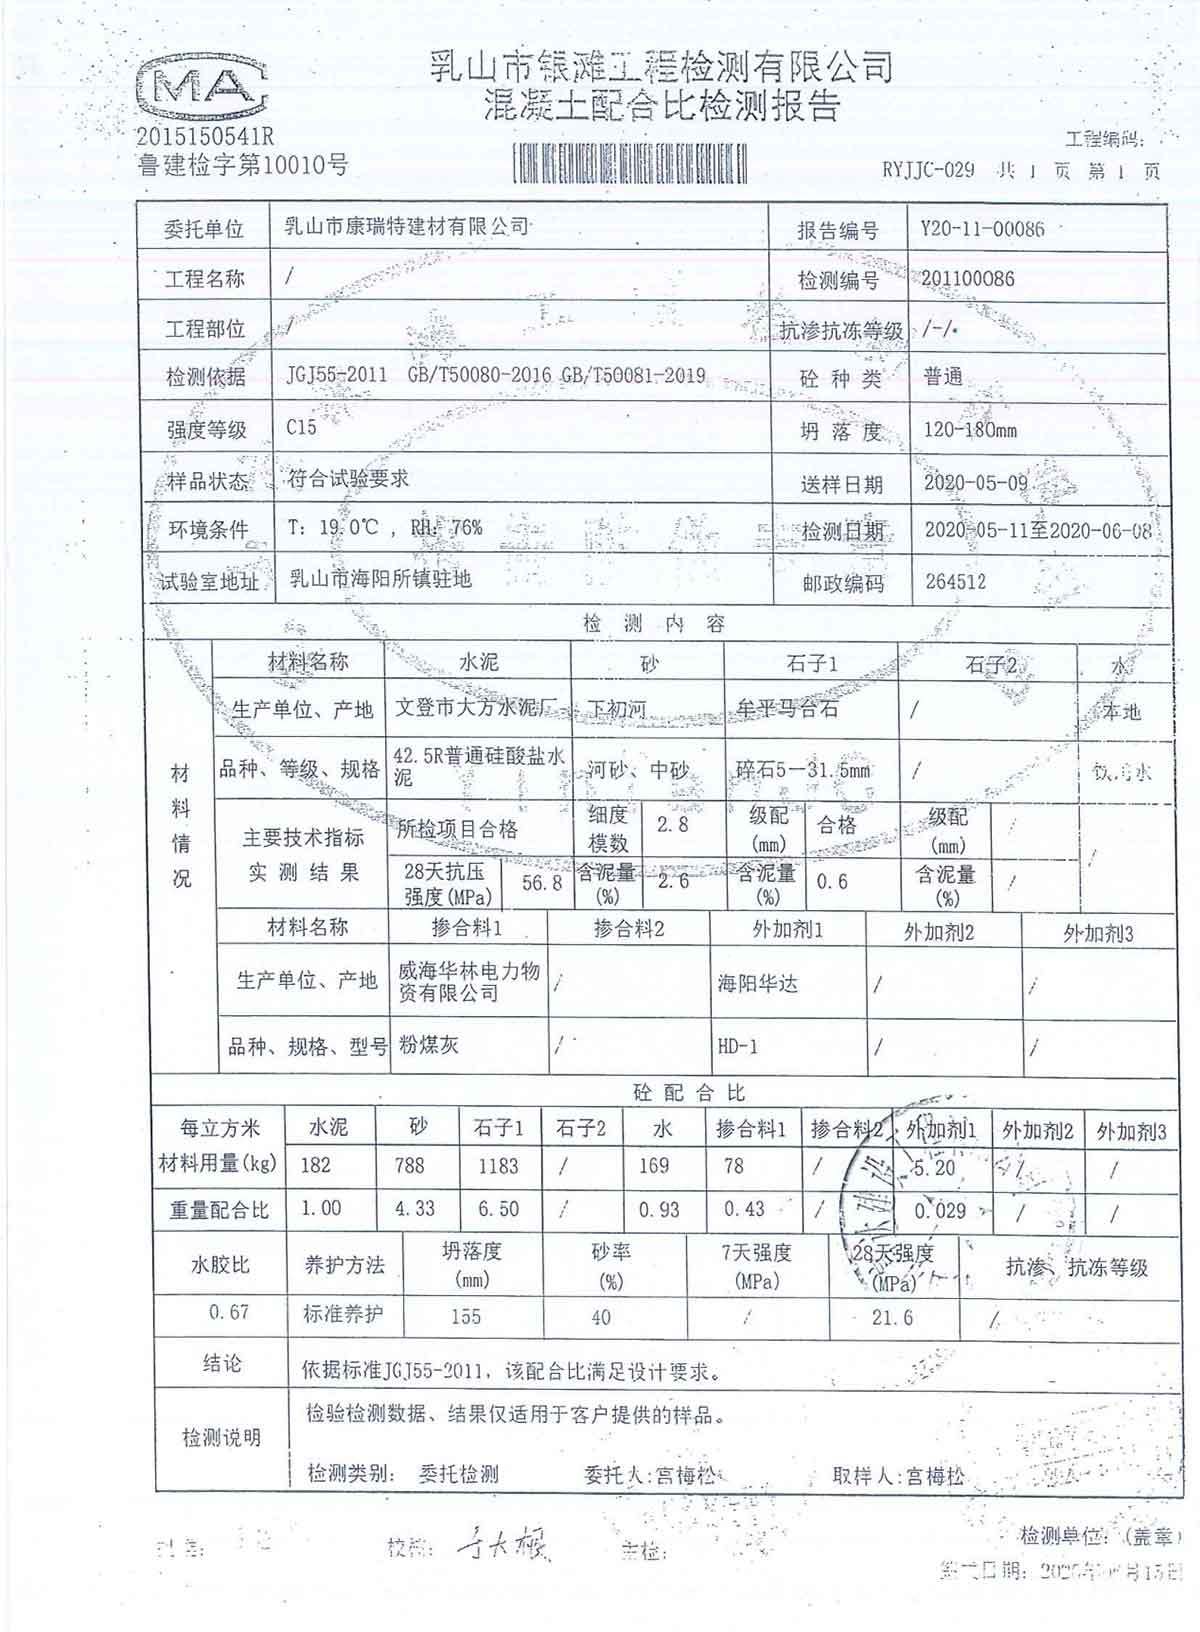 CMA
乳山市银滩工程检测有限公司
混凝土配合比检测报告
2015150541R
鲁建检字第10010号
工程编码:
RYJJC-029 共 1 页 第 1 页
委托单位 乳山市康瑞特建材有限公司 报告编号 Y20-11-00086
工程名称 / 检测编号 201100086
工程部位 / 抗渗抗冻等级 /-/
检测依据 JGJ55-2011 GB/T50080-2016 GB/T50081-2019 砼 种 类 普通
强度等级 C15 坍 落 度 120-180mm
样品状态 符合试验要求 送样日期 2020-05-09
环境条件 T: 19.0℃ , RH: 76% 检测日期 2020-05-11至2020-06-08
试验室地址 乳山市海阳所镇驻地 邮政编码 264512
检 测 内 容
材料情况
材料名称 水泥 砂 石子1 石子2 水
生产单位、产地 文登市大方水泥厂 下初河 牟平马台石 / 本地
品种、等级、规格 42.5R普通硅酸盐水泥 河砂、中砂 碎石5-31.5mm / 饮用水
主要技术指标 实 测 结 果 所检项目合格 细度模数 2.8 级配(mm) 合格 级配(mm) / /
28天抗压强度(MPa) 56.8 含泥量(%) 2.6 含泥量(%) 0.6 含泥量(%) /
材料名称 掺合料1 掺合料2 外加剂1 外加剂2 外加剂3
生产单位、产地 威海华林电力物资有限公司 / 海阳华达 / /
品种、规格、型号 粉煤灰 / HD-1 / /
砼 配 合 比
每立方米材料用量(kg) 水泥 砂 石子1 石子2 水 掺合料1 掺合料2 外加剂1 外加剂2 外加剂3
182 788 1183 / 169 78 / 5.20 / /
重量配合比 1.00 4.33 6.50 / 0.93 0.43 / 0.029 / /
水胶比 养护方法 坍落度(mm) 砂率(%) 7天强度(MPa) 28天强度(MPa) 抗渗、抗冻等级
0.67 标准养护 155 40 / 21.6 /
结论 依据标准JGJ55-2011, 该配合比满足设计要求。
检测说明 检验检测数据、结果仅适用于客户提供的样品。
检测类别: 委托检测 委托人:宫梅松 取样人:宫梅松
校核: 于大根 主检:
检测单位: (盖章)